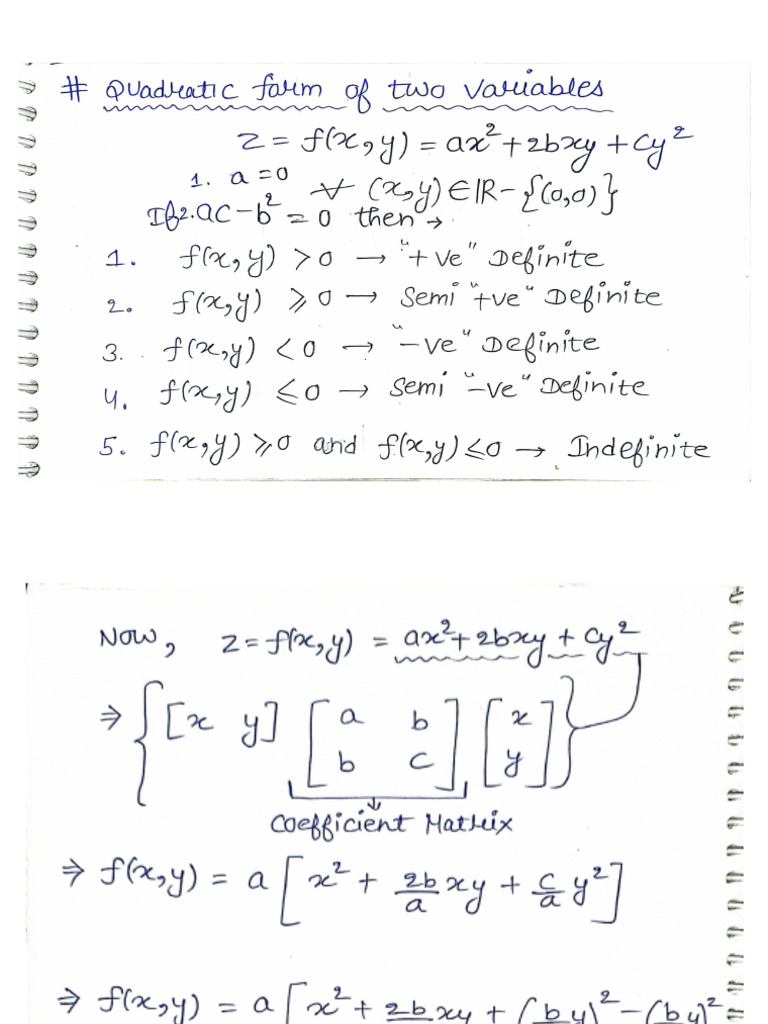 # Quadratic form of two variables
z = f(x,y) = ax² + 2bxy + cy²
1. a = 0 ∀ (x,y) ∈ IR - {(0,0)}
If 2. ac - b² = 0 then →
1. f(x,y) > 0 → "+ve" Definite
2. f(x,y) ⩾ 0 → Semi "+ve" Definite
3. f(x,y) < 0 → "-ve" Definite
4. f(x,y) ≤ 0 → Semi "-ve" Definite
5. f(x,y) ⩾ 0 and f(x,y) ≤ 0 → Indefinite
Now, z = f(x,y) = ax² + 2bxy + cy²
⇒ { [x y] [a b
b c] [x
y] }
Coefficient Matrix
⇒ f(x,y) = a [x² + 2b/a xy + c/a y²]
⇒ f(x,y) = a [x² + 2b xy + (by)² - (by)²